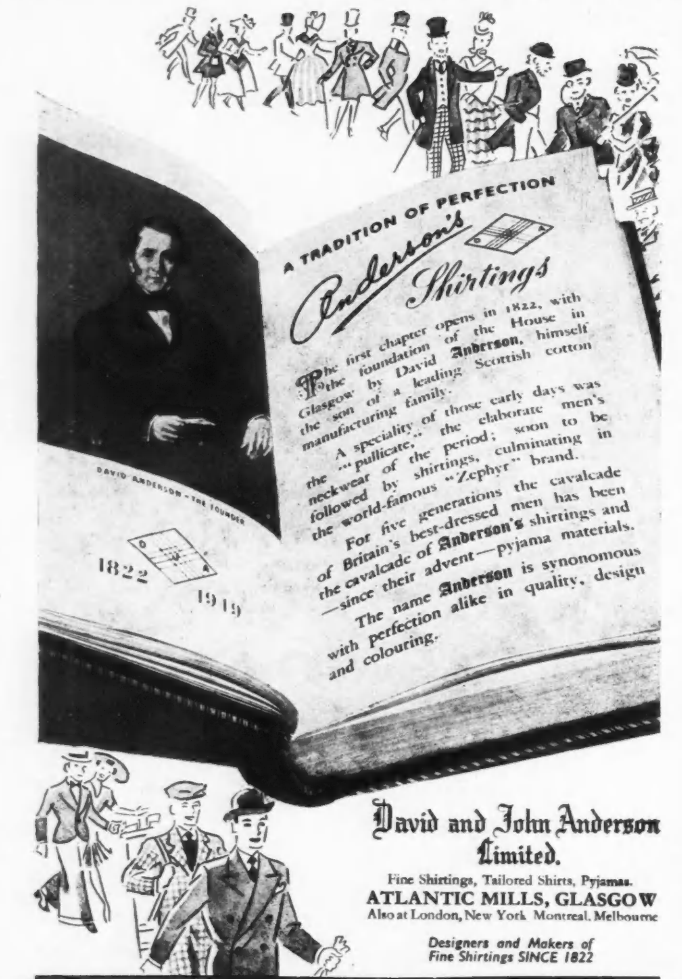 A TRADITION OF PERFECTION
Anderson's
Shirtings
The first chapter opens in 1822, with
the foundation of the House in
Glasgow by David Anderson, himself
the son of a leading Scottish cotton
manufacturing family.
A speciality of those early days was
the "pullicate," the elaborate men's
neckwear of the period; soon to be
followed by shirtings, culminating in
the world-famous "Zephyr" brand.
For five generations the cavalcade
of Britain's best-dressed men has been
the cavalcade of Anderson's shirtings and
—since their advent—pyjama materials.
The name Anderson is synonomous
with perfection alike in quality, design
and colouring.
DAVID ANDERSON - THE FOUNDER
D
J
A
1822
1949
David and John Anderson
Limited.
Fine Shirtings, Tailored Shirts, Pyjamas.
ATLANTIC MILLS, GLASGOW
Also at London, New York Montreal, Melbourne
Designers and Makers of
Fine Shirtings SINCE 1822